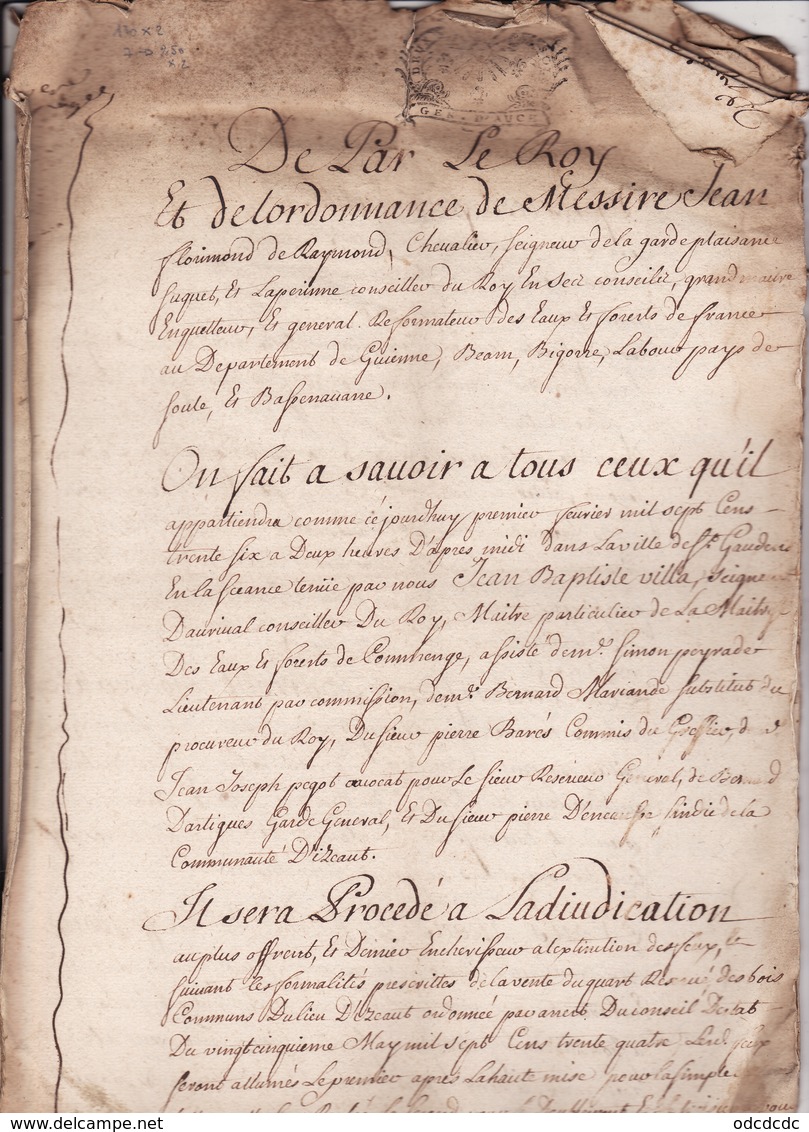 130 x 2
7 - D 250
x 2
GEN. D'AUCH
De Par Le Roy
Et de lordonnance de Messire Jean
florimond de Raymond, Chevalier, seigneur de la garde plaisance
suquet, Et Laperinne conseiller du Roy En ses conseils, grand maitre
Enquetteur, Et general Reformateur des Eaux Et forests de france
au Departement de Guienne, Bearn, Bigorre, Labour pays de
soule, Et Bassenavarre.
On fait a savoir a tous ceux qu'il
appartiendra comme cejourdhuy premier fevrier mil sept Cens
trente six a Deux heures D'apres midi dans La ville de St. Gaudens
En la sceance tenüe par nous Jean Baptiste villa, seigneur
Daurival conseiller Du Roy, Maitre particulier de La Maitrise
Des Eaux Et forests de Commenge, assisté de mr. simon peyrade
Lieutenant par commission, de mr. Bernard Mariande substitut du
procureur du Roy, Du sieur pierre Barés Commis du Greffier, de
Jean Joseph pegot avocat pour Le sieur Receveur General, de Bernard
Dartigues Garde General, Et Du sieur pierre sindic de la
Communauté D'izeaut.
Il sera Procedé a Ladiudication
au plus offrent, Et Dernier Encherisseur a lextinction des feux,
suivant Les formalités prescrittes de la vente du quart Reservé des bois
Communs Du lieu D'izeaut ordonnée par arrest Du conseil Destat
Du vingt cinquieme May mil sept Cens trente quatre feux
seront allumés Le premier apres La haut mise pour la simple
odcdcdc